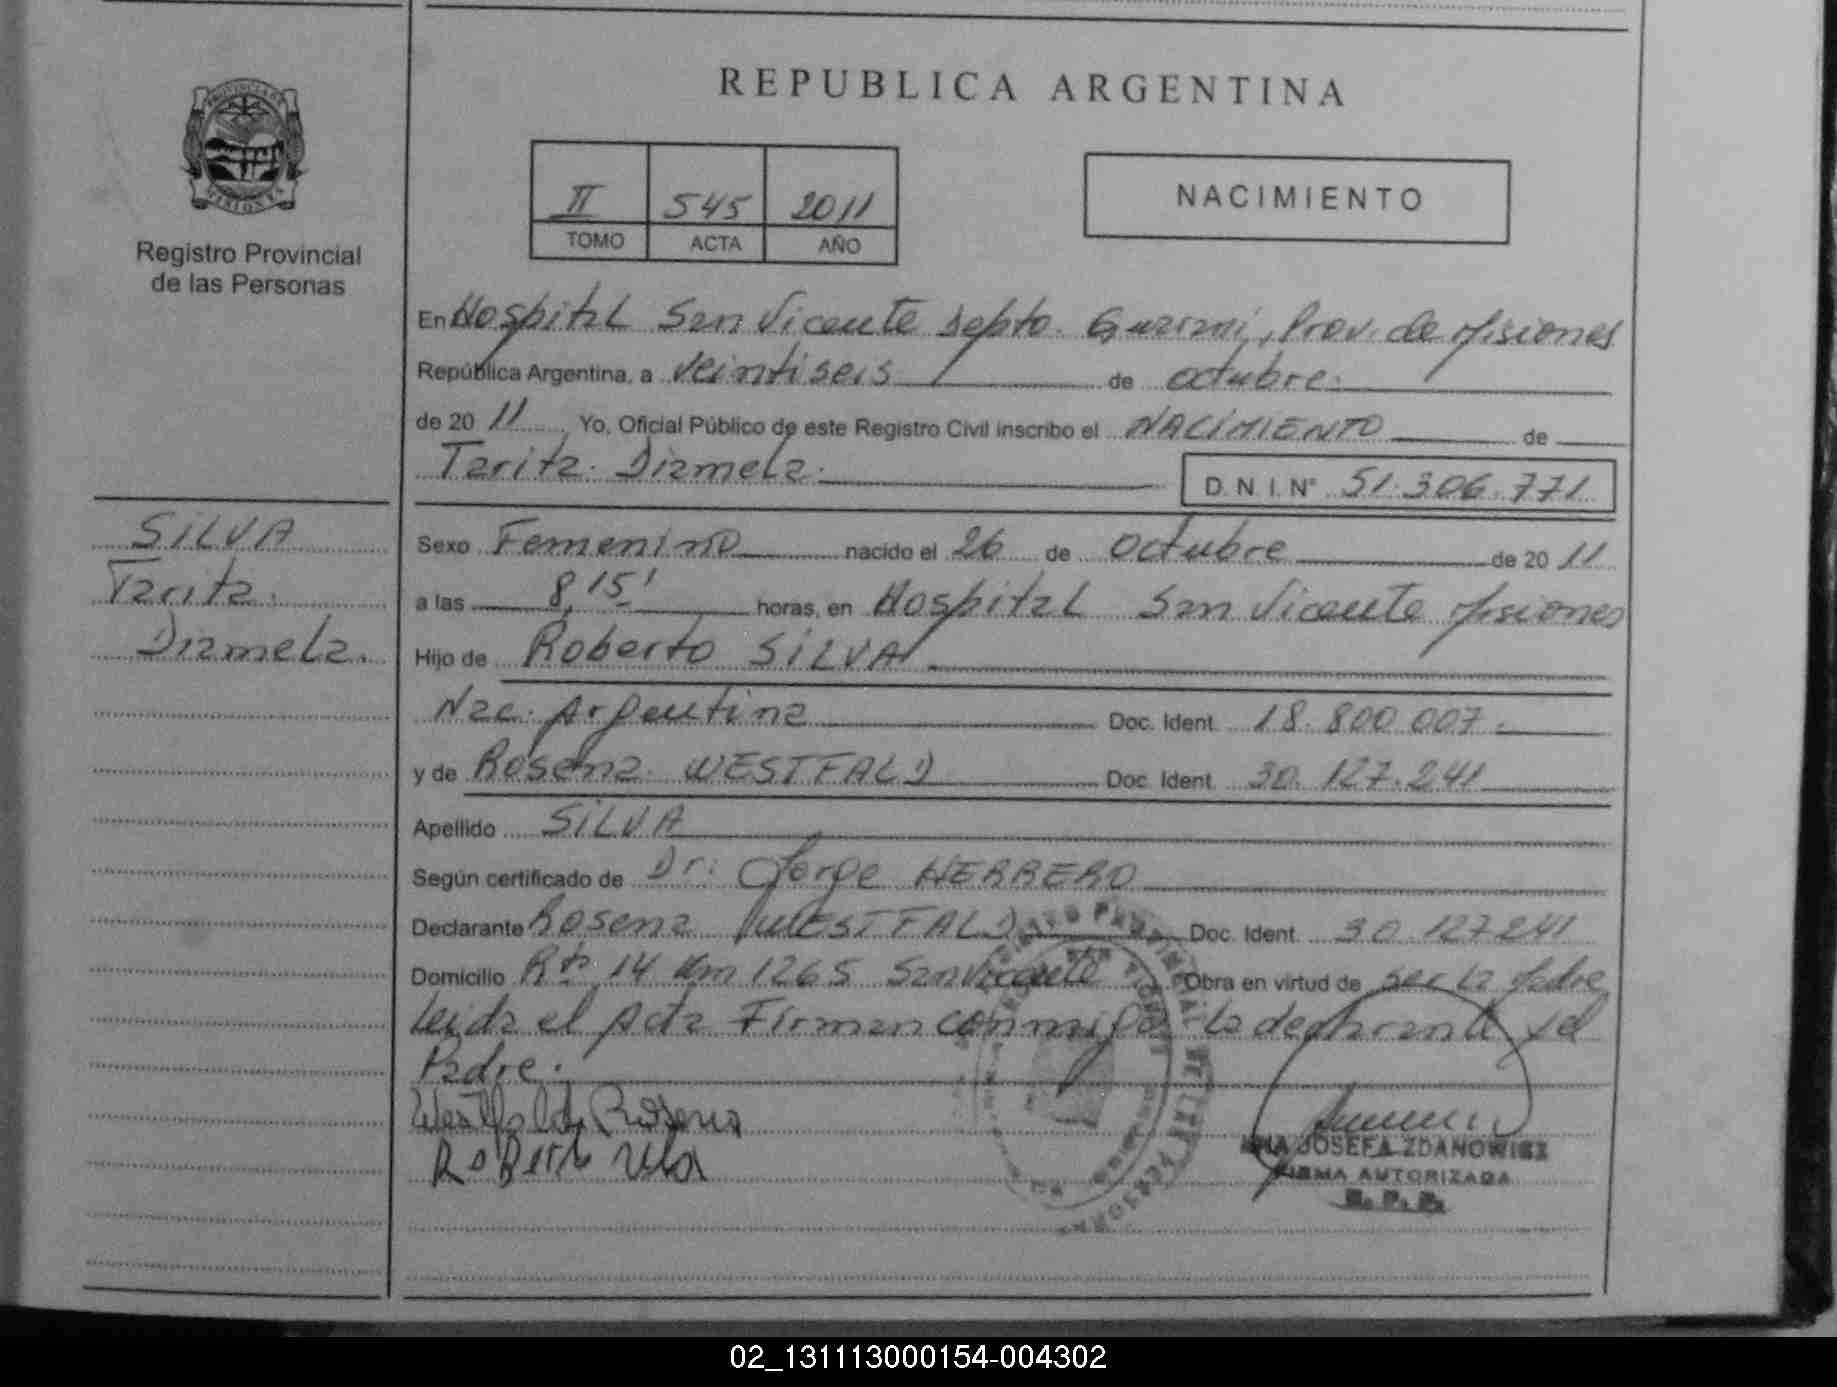 REPUBLICA ARGENTINA
PROVINCIA DE MISIONES
Registro Provincial
de las Personas
II 545 2011
TOMO ACTA AÑO
NACIMIENTO
En Hospital San Vicente Depto. Guaraní, Prov. de Misiones
República Argentina, a veintiseis de octubre.
de 20 11 Yo, Oficial Público de este Registro Civil inscribo el NACIMIENTO de
Tarita. Diamela. D.N.I. N° 51.306.771
SILVA
Tarita.
Diamela.
Sexo Femenino nacido el 26 de Octubre de 20 11
a las 8,15' horas, en Hospital San Vicente Misiones
Hijo de Roberto SILVA
Nac. Argentina Doc. Ident. 18.800.007.
y de Rosena WESTFALD Doc. Ident. 30.127.241
Apellido SILVA
Según certificado de Dr. Jorge HERRERO
Declarante Rosena WESTFALD Doc. Ident. 30.127241
Domicilio Rta 14 Km 1265 San Vicente Obra en virtud de ser la Madre
leida el Acta Firman conmigo la declarante y el
Padre.
Westfald Rosena
Roberto
JOSEFA ZDANOWICZ
FIRMA AUTORIZADA
R. P. P.
02_131113000154-004302